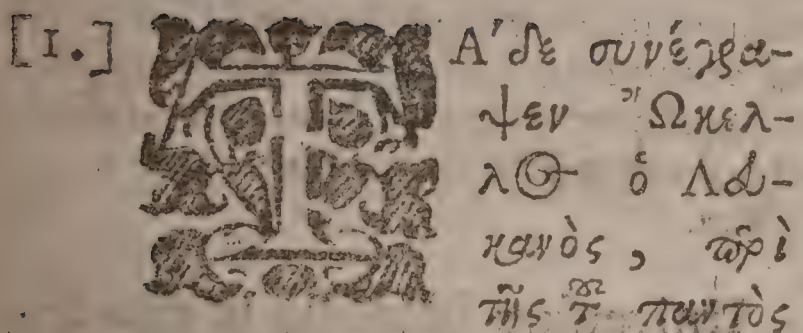 [1.] ΤΑ'δε συνέγρα-
ψεν Ὤκελ-
λος ὁ Λευ-
κανὸς, περὶ
τῆς τοῦ παντὸς